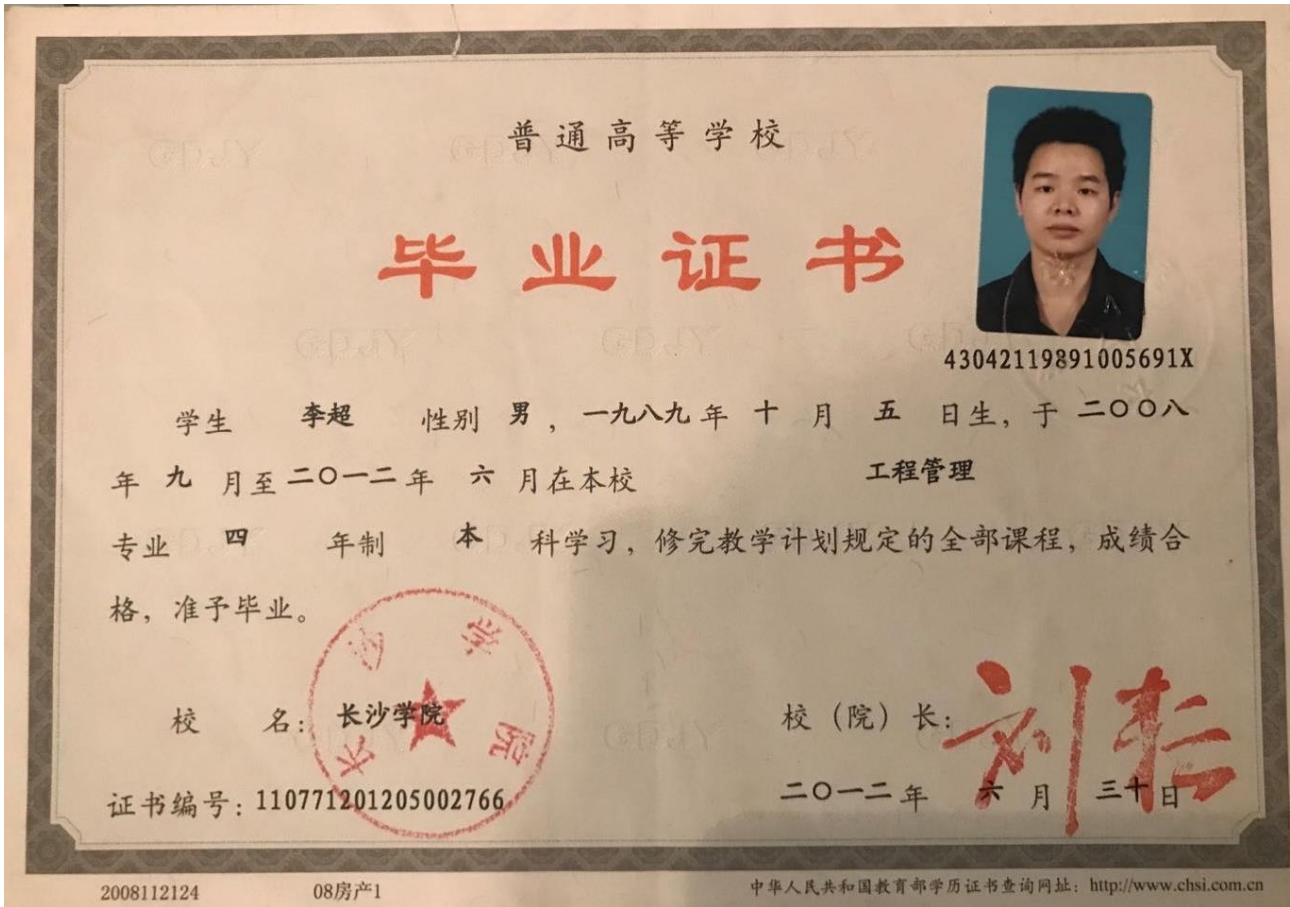 普通高等学校
毕业证书
43042119891005691X
学生 李超 性别 男，一九八九年 十 月 五 日生，于 二〇〇八
年 九 月至二〇一二年 六 月在本校 工程管理
专业 四 年制 本 科学习，修完教学计划规定的全部课程，成绩合
格，准予毕业。
长沙学院
校 名：长沙学院 校（院）长：
证书编号：110771201205002766 二〇一二年 六 月 三十日
2008112124 08房产1 中华人民共和国教育部学历证书查询网址：http://www.chsi.com.cn